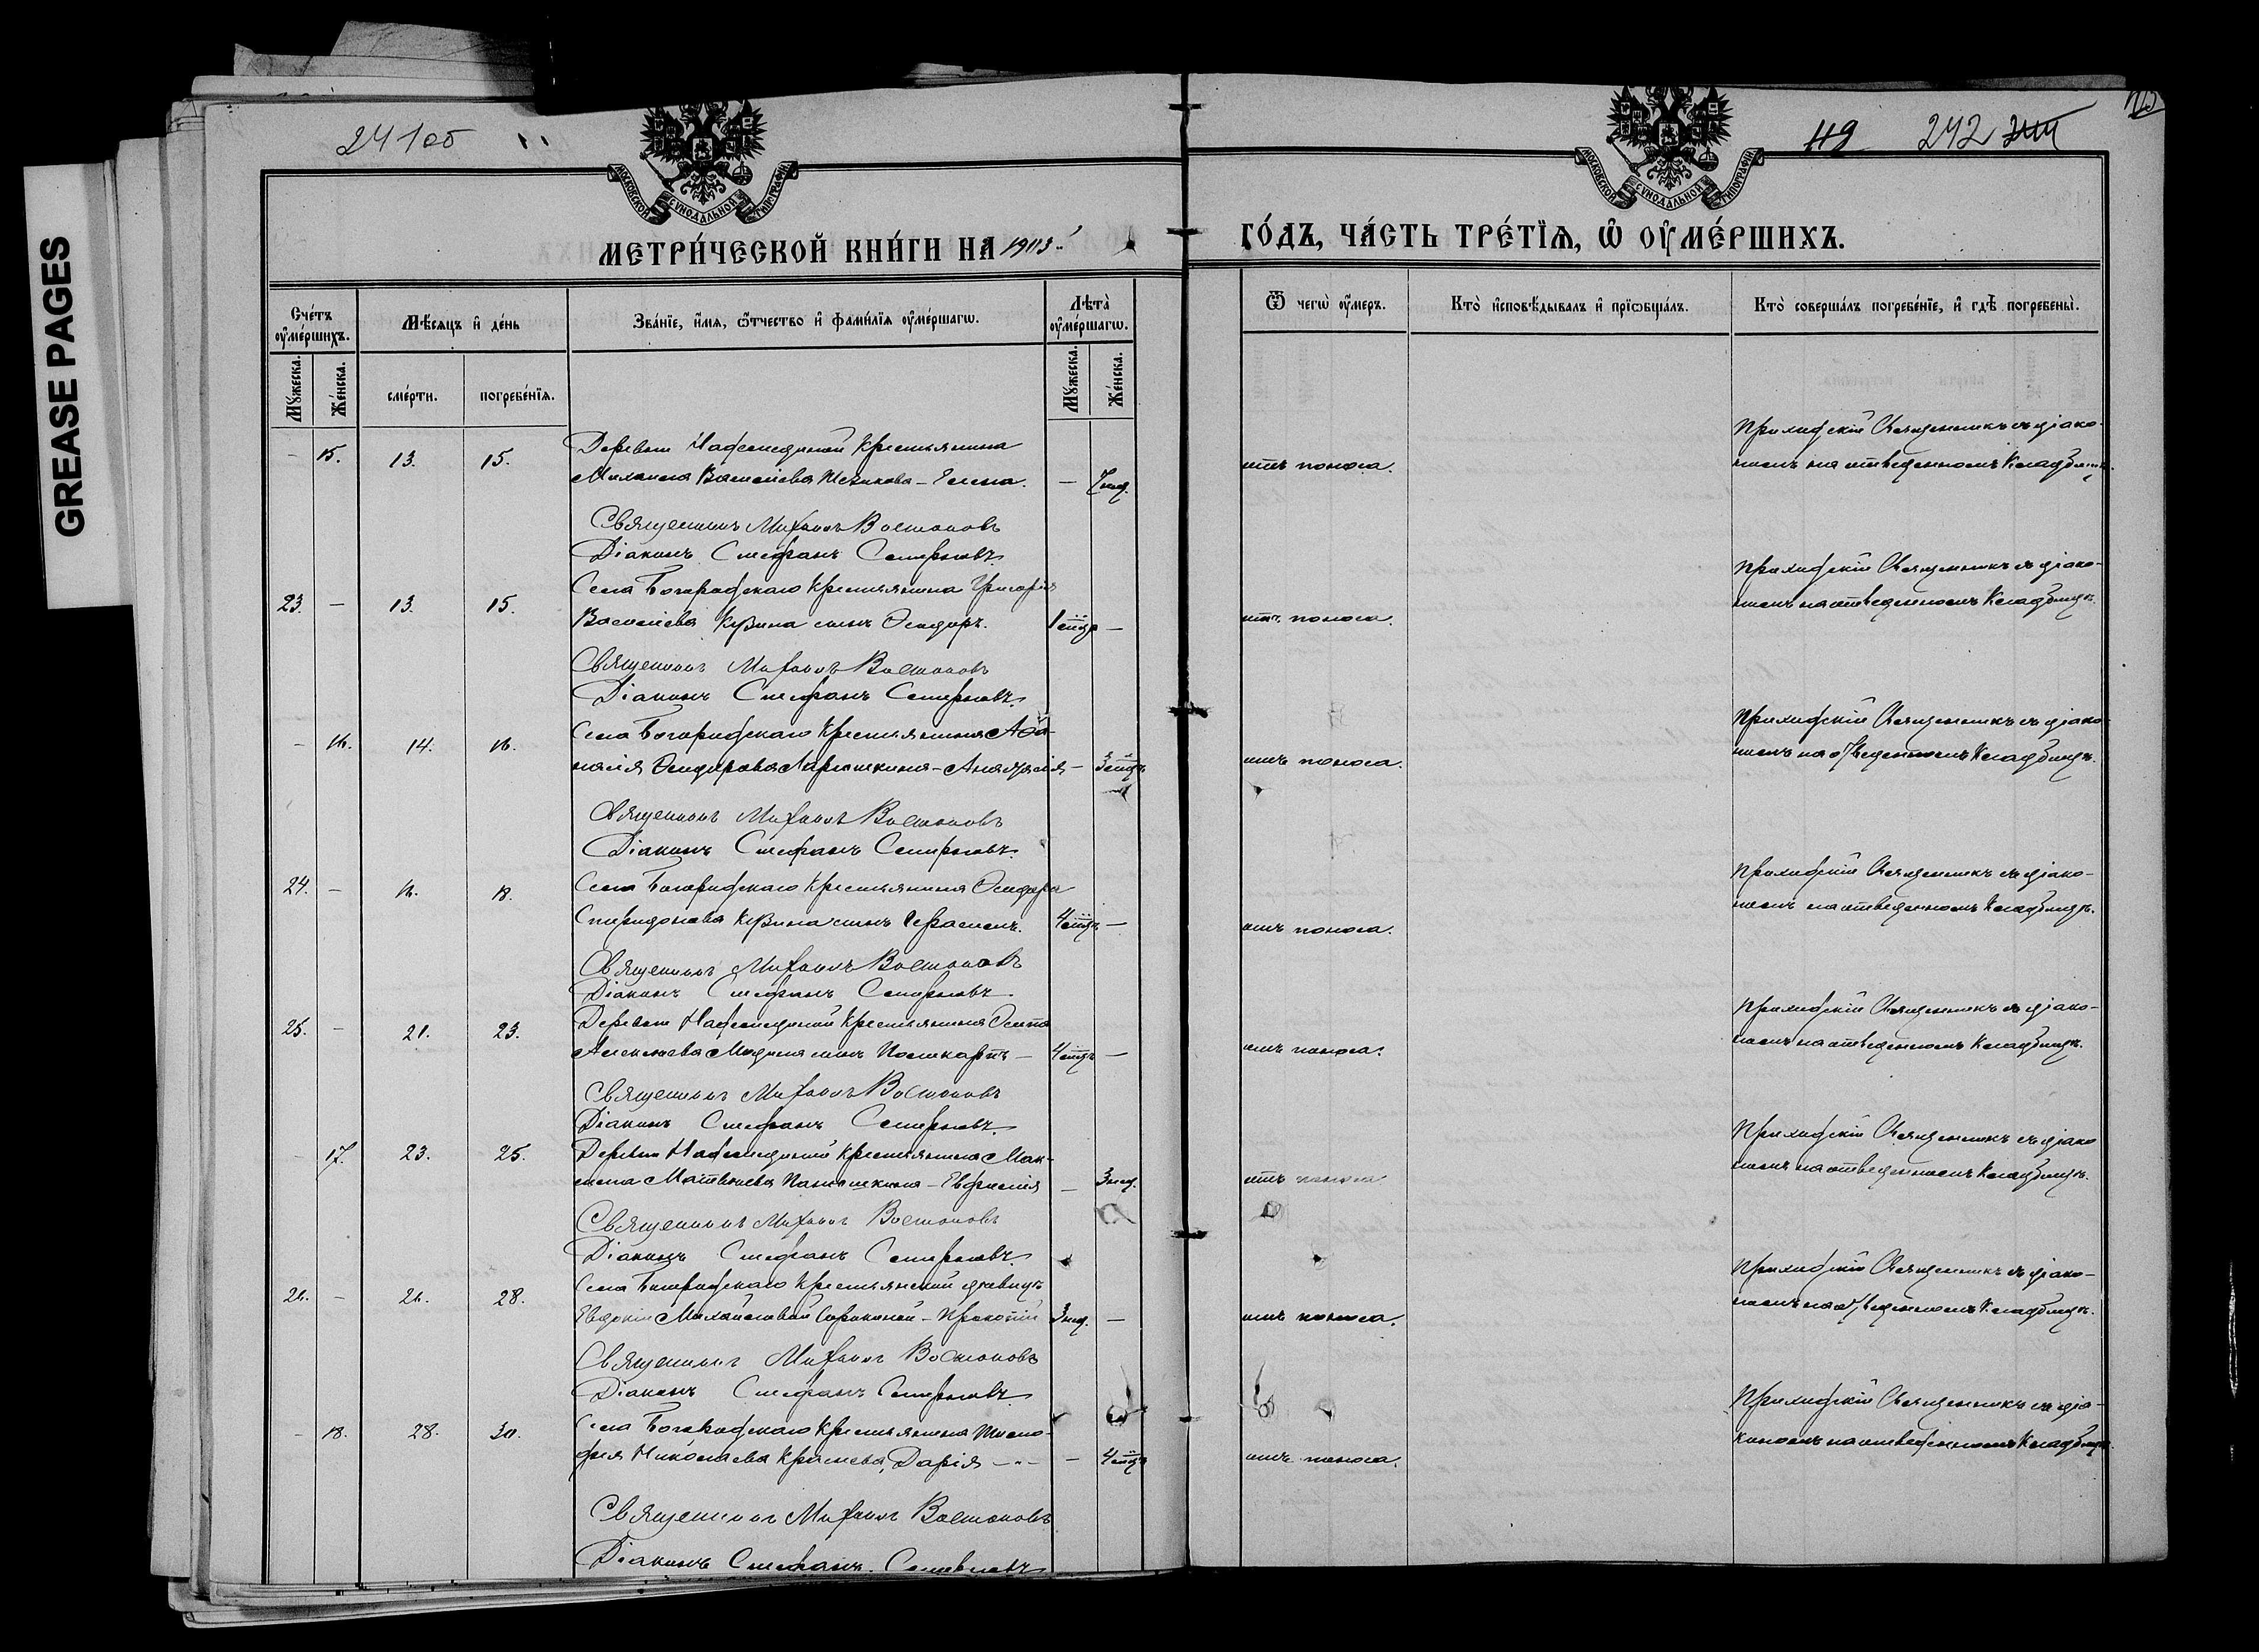 GREASE PAGES
241об
119 242
МОСКОВСКОЙ СѴНОДАЛЬНОЙ ТИПОГРАФІИ
МОСКОВСКОЙ СѴНОДАЛЬНОЙ ТИПОГРАФІИ
МЕТРИ́ЧЕСКОЙ КНИ́ГИ НА 1903
ГО́ДЪ, ЧА́СТЬ ТРЕ́ТЇѦ, Ѡ ОУ҆МЕ́РШИХЪ.
Сче́тъ оу҆ме́ршихъ.
Мѣ́сяцъ и҆ де́нь
Зва́нїе, и҆́мя, ѻ҆́тчество и҆ фами́лїя оу҆ме́ршагѡ.
Лѣта̀ оу҆ме́ршагѡ.
Ѿ чегѡ̀ оу҆́меръ.
Кто̀ и҆сповѣ́дывалъ и҆ прїѡбща́лъ.
Кто̀ соверша́лъ погребе́нїе, и҆ гдѣ̀ погребены̀.
Мꙋ́жеска.
Же́нска.
сме́рти.
погребе́нїя.
Мꙋ́жеска.
Же́нска.
- 15. 13. 15. Деревни крестьянина
Васильева - Елена. - 7 нед. отъ поноса. Приходскій Священникъ съ діако-
номъ на отведенномъ Кладбищѣ.
Священникъ Михаилъ Востоковъ
Діаконъ Стефанъ Смирновъ
23. - 13. 15. Села Богородскаго крестьянина Григорія
Васильева Кузина сынъ Ѳеодоръ. 1 - отъ поноса. Приходскій Священникъ съ діако-
номъ на отведенномъ Кладбищѣ.
Священникъ Михаилъ Востоковъ
Діаконъ Стефанъ Смирновъ.
- 16. 14. 16. Села Богородскаго крестьянина Аѳа-
насія Ѳеодорова Ларюшкина - - 3 отъ поноса. Приходскій Священникъ съ діако-
номъ на отведенномъ Кладбищѣ.
Священникъ Михаилъ Востоковъ
Діаконъ Стефанъ Смирновъ.
24. - 16. 18. Села Богородскаго крестьянина Ѳеодора
Спиридонова Кузина сынъ Герасимъ. 4 - отъ поноса. Приходскій Священникъ съ діако-
номъ на отведенномъ Кладбищѣ.
Священникъ Михаилъ Востоковъ
Діаконъ Стефанъ Смирновъ
25. - 21. 23. Деревни крестьянина Осипа
Алексѣева сынъ Поликарпъ - 4 - отъ поноса. Приходскій Священникъ съ діако-
номъ на отведенномъ Кладбищѣ.
Священникъ Михаилъ Востоковъ
Діаконъ Стефанъ Смирновъ.
- 17. 23. 25. Деревни крестьянина Мак-
сима Матвѣева - Евфимія - 3 нед. отъ поноса Приходскій Священникъ съ діако
номъ на отведенномъ Кладбищѣ.
Священникъ Михаилъ Востоковъ
Діаконъ Стефанъ Смирновъ.
26. - 26. 28. Села Богородскаго крестьянской дѣвицы
Евдокіи Михайловой Сорокиной - Прокопій 3 нед. - отъ поноса. Приходскій Священникъ съ діако-
номъ на отведенномъ Кладбищѣ.
Священникъ Михаилъ Востоковъ
Діаконъ Стефанъ Смирновъ.
- 18. 28. 30. Села Богородскаго крестьянина Тимо-
фея Николаева Дарія - - 4 отъ поноса. Приходскій Священникъ съ діа-
кономъ на отведенномъ Кладбищѣ.
Священникъ Михаилъ Востоковъ
Діаконъ Стефанъ Смирновъ